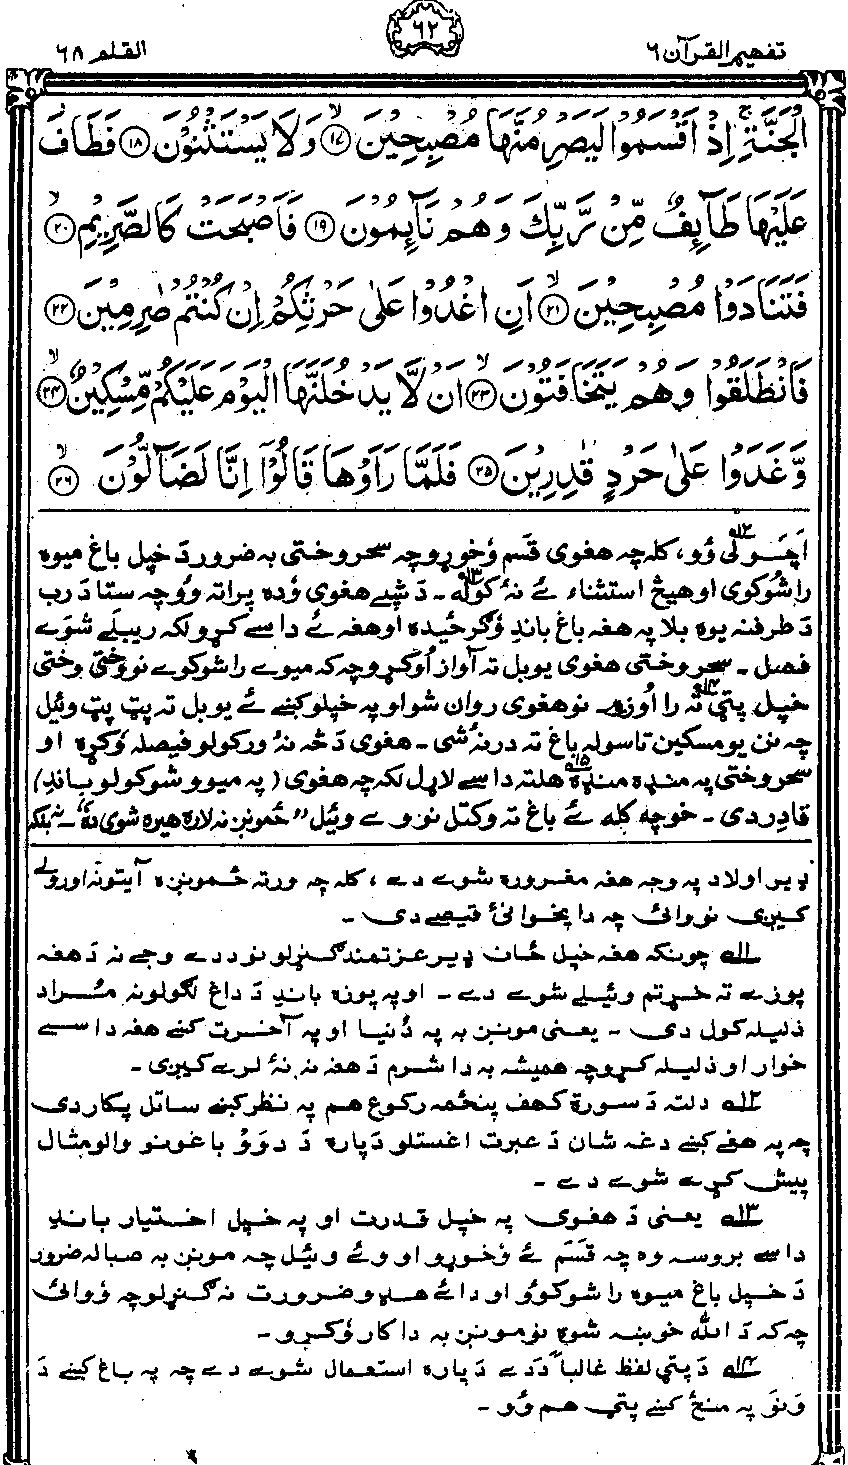 تفهيم القرآن ٦
٦٢
القلم ٦٨
الْجَنَّةِ ۚ اِذْ اَقْسَمُوْا لَيَصْرِمُنَّهَا مُصْبِحِيْنَ ۙ ١٧ وَلَا يَسْتَثْنُوْنَ ١٨ فَطَافَ
عَلَيْهَا طَآئِفٌ مِّنْ رَّبِّكَ وَهُمْ نَآئِمُوْنَ ١٩ فَاَصْبَحَتْ كَالصَّرِيْمِ ۙ ٢٠
فَتَنَادَوْا مُصْبِحِيْنَ ۙ ٢١ اَنِ اغْدُوْا عَلٰى حَرْثِكُمْ اِنْ كُنْتُمْ صٰرِمِيْنَ ٢٢
فَانْطَلَقُوْا وَهُمْ يَتَخَافَتُوْنَ ۙ ٢٣ اَنْ لَّا يَدْخُلَنَّهَا الْيَوْمَ عَلَيْكُمْ مِّسْكِيْنٌ ۙ ٢٤
وَّغَدَوْا عَلٰى حَرْدٍ قٰدِرِيْنَ ٢٥ فَلَمَّا رَاَوْهَا قَالُوْٓا اِنَّا لَضَآلُّوْنَ ۙ ٢٦
اچولى ؤو، كله چه هغوى قسم ؤخوړو چه سحر وختى به ضرور دَ خپل باغ ميوه
راشوكوى او هيڅ استثناء ئے نۀ كوله ۔ دَ شپے هغوى ؤده پراته ؤو چه ستا دَ رب
دَ طرفنه يوه بلا په هغه باغ باندِ ؤګرځيده او هغه ئے دا سے كړو لكه ريبلے شوے
فصل ۔ سحر وختى هغوى يو بل ته آواز ؤكړو چه كه ميوے را شوكوے نو وختى وختى
خپل پټى ته را ؤزئ ۔ نو هغوى روان شو او په خپلو كښے ئے يو بل ته پټ پټ وئيل
چه نن يو مسكين تاسو له باغ ته درنۀ شى ۔ هغوى دَ څه نۀ وركولو فيصله ؤكړه او
سحر وختى په منډه منډه هلته دا سے لاړل لكه چه هغوى (په ميوو شوكولو باندِ)
قادر دى ۔ خو چه كله ئے باغ ته وكتل نو وے وئيل "ځمونږ نه لاره هيره شوى ده" ۔ نه بلكه
ډير اولاد په وجه هغه مغروره شوے دے ، كله چه ورته ځمونږه آيتونه اورولے
كيږى نو وائى چه دا پخوانئ قيصے دى ۔
١١ چونكه هغه خپل ځان ډير عزتمند ګنړلو نو د دے وجے نه دَ هغه
پوزے ته خرتم وئيلے شوے دے ۔ او په پوزه باندِ دَ داغ لګولو نه مُراد
ذليله كول دى ۔ يعنى مونږ به په دُنيا او په آخرت كښے هغه دا سے
خوار او ذليله كړو چه هميشه به دا شرم دَ هغه نه نۀ لرے كيږى ۔
١٢ دلته دَ سورة كهف پنځمه ركوع هم په نظر كښے ساتل پكار دى
چه په هغے كښے دغه شان دَ عبرت اغستلو دَپاره دَ دوَوؤ باغونو والو مثال
پيش كړے شوے دے ۔
١٣ يعنى دَ هغوى په خپل قدرت او په خپل اختيار باندِ
دا سے بروسه وه چه قَسَم ئے ؤخوړو او وئے وئيل چه مونږ به صبا له ضرور
دَ خپل باغ ميوه را شوكوؤ او دا ئے هډو ضرورت نه ګنړلو چه ؤوائى
چه كه دَ الله خوښه شوه نو مونږ به دا كار ؤكړو ۔
١٤ دَ پټى لفظ غالباً دَ دے دَپاره استعمال شوے دے چه په باغ كښے دَ
ونو په منځ كښے پټى هم ؤو ۔